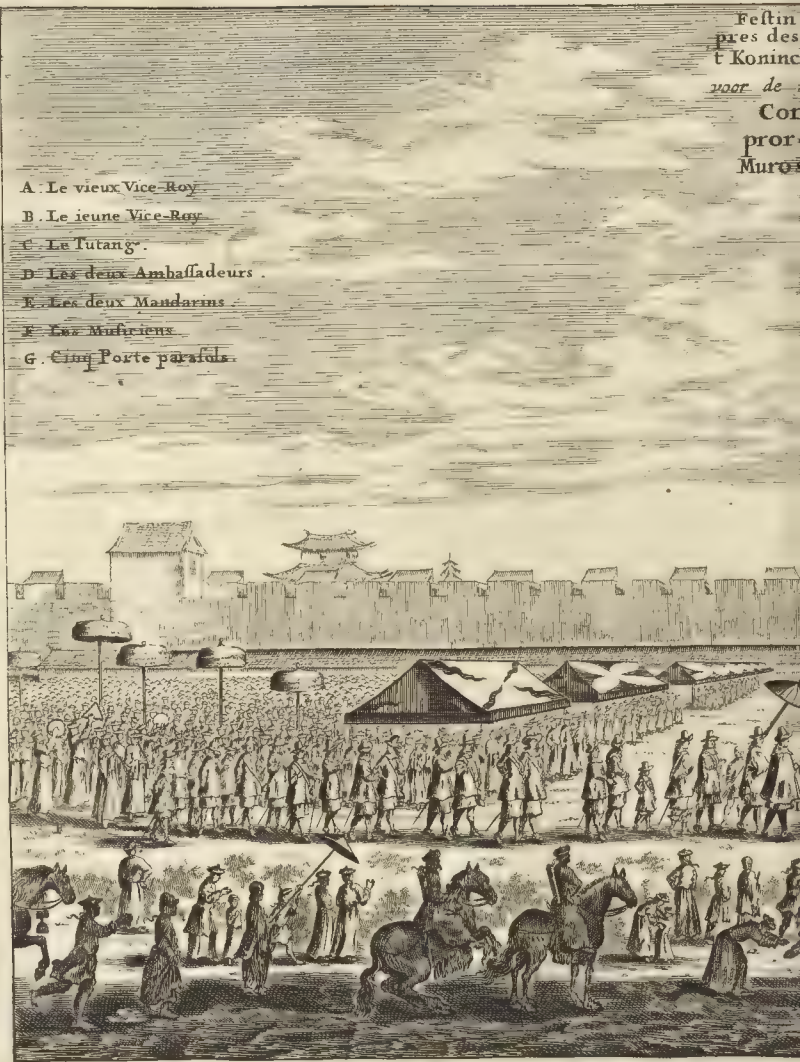 Feſtin
pres des
t Koninc
voor de
Cor
pror
Muros
A. Le vieux Vice-Roy
B. Le ieune Vice-Roy
C. Le Tutang.
D. Les deux Ambaſſadeurs.
E. Les deux Mandarins.
F. Les Muſiciens
G. Cinq Porte paraſols.